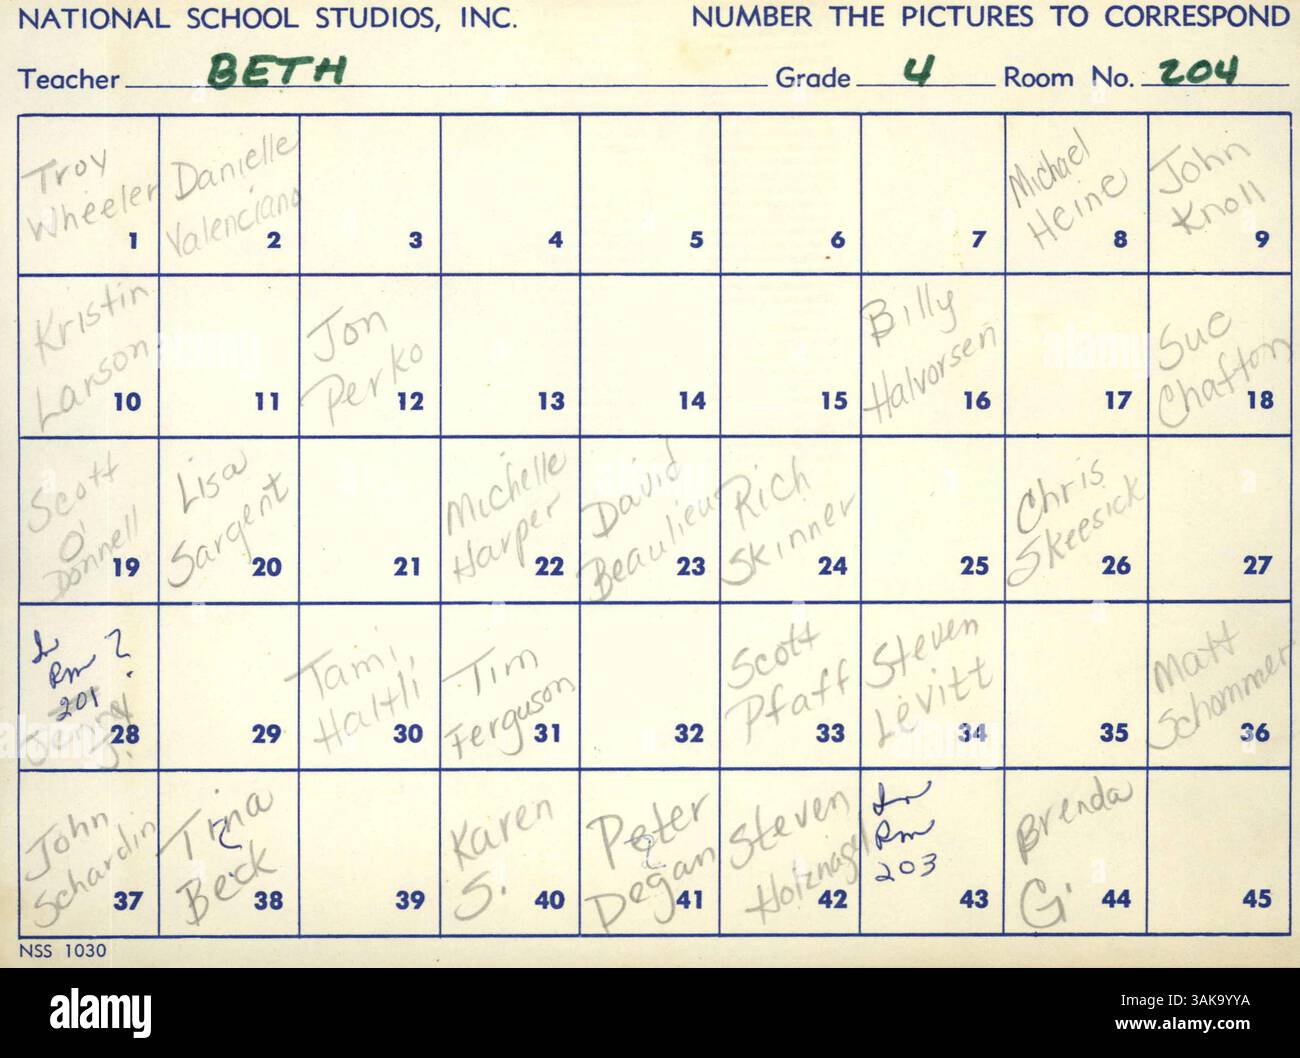 NATIONAL SCHOOL STUDIOS, INC. NUMBER THE PICTURES TO CORRESPOND
Teacher BETH Grade 4 Room No. 204
Troy Wheeler 1
Danielle Valenciano 2
3
4
5
6
7
Michael Heine 8
John Knoll 9
Kristin Larson 10
11
Jon Perko 12
13
14
15
Billy Halvorsen 16
17
Sue Chafton 18
Scott O'Donnell 19
Lisa Sargent 20
21
Michelle Harper 22
David Beaulieu 23
Rich Skinner 24
25
Chris Skeesick 26
27
In Rm 201 ? 28
29
Tami Haltli 30
Tim Ferguson 31
32
Scott Pfaff 33
Steven Levitt 34
35
Matt Schommer 36
John Schardin 37
Tina Beck ? 38
39
Karen S. 40
Peter Degan ? 41
Steven Holznagel 42
In Rm 203 43
Brenda G. 44
45
NSS 1030
alamy
Image ID: 3AK9YYA
www.alamy.com